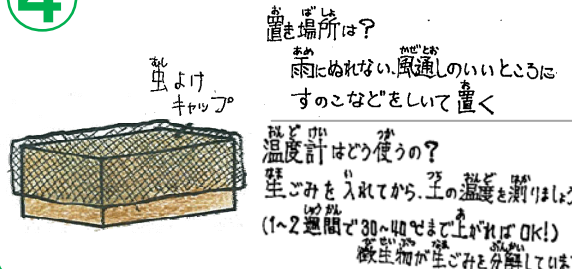 4
虫よけ
キャップ
置き場所は？
雨にぬれない、風通しのいいところに
すのこなどをしいて置く
温度計はどう使うの？
生ごみを入れてから、土の温度を測りましょう
(1~2週間で30~40℃まで上がればOK!)
微生物が生ごみを分解していま